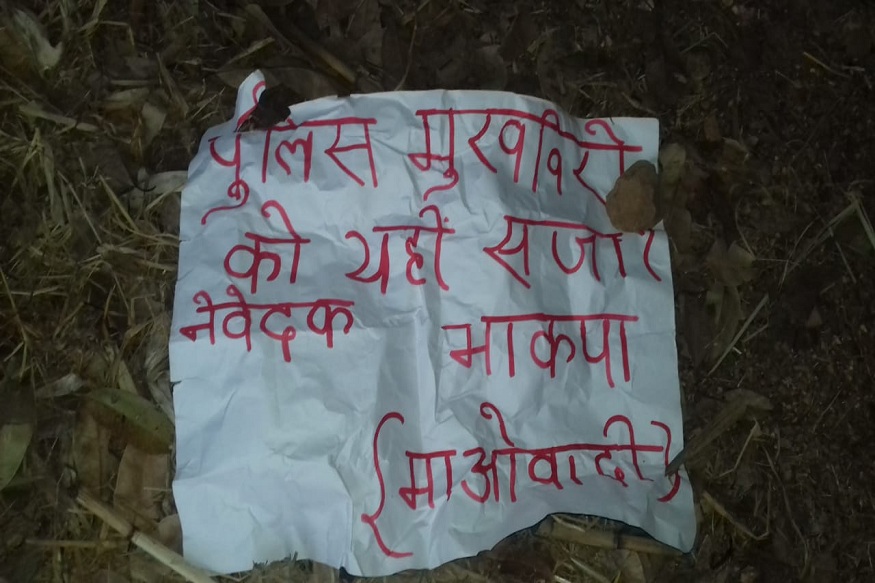 पुलिस मुरवविरो
को यही सजा
नेवेदक भाकपा
{माओवादी}